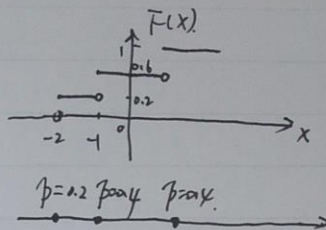 F(x).
1
0.6
0.2
-2 -1 0 x
p=0.2 p=0.4 p=0.4.